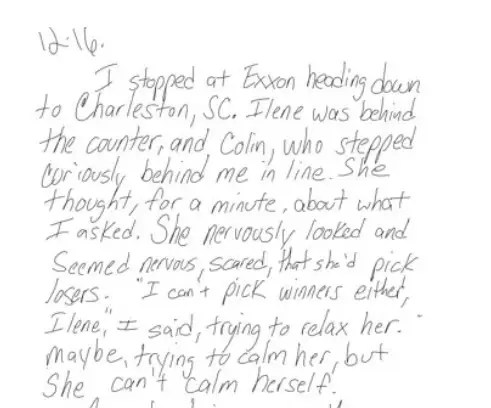 12.16.
I stopped at Exxon heading down
to Charleston, SC. Ilene was behind
the counter, and Colin, who stepped
curiously behind me in line. She
thought, for a minute, about what
I asked. She nervously looked and
Seemed nervous, scared, that she'd pick
losers. "I can't pick winners either,
Ilene," I said, trying to relax her.
maybe, trying to calm her, but
She can't calm herself.